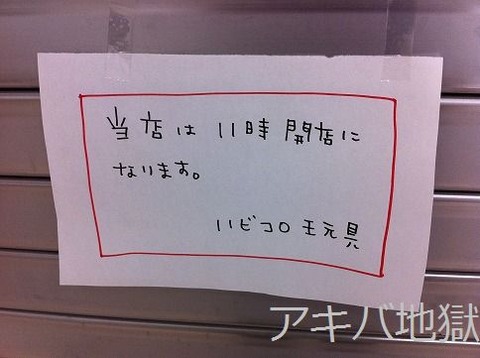 当店は 11時開店に
なります。
ハビコロ玉玩具
アキバ地獄